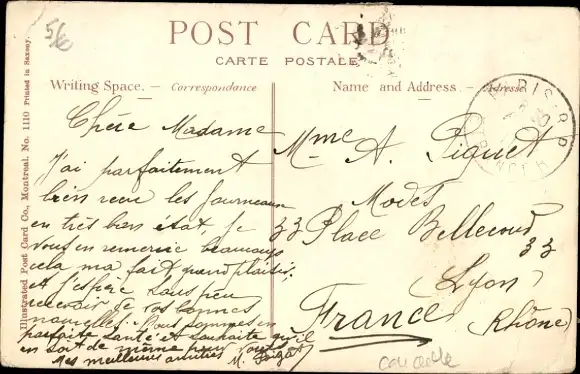 56
POST CARD
CARTE POSTALE
Writing Space. — Correspondance
Name and Address. — Adresse
Illustrated Post Card Co., Montreal. No. 1110 Printed in Saxony.
Chère Madame
J'ai parfaitement
bien recu les fourneaux
en très bon état, je
vous en remercie beaucoup
cela ma fait grand plaisir,
et j'espère sous peu
recevoir de vos bonnes
nouvelles. Nous sommes en
parfaite santé et souhaite qu'il
en soit de même pour vous
Mes meilleures amitiés
M.
Mme A. Piguet
Modes
33 Place Bellecour 33
Lyon
France (Rhône)